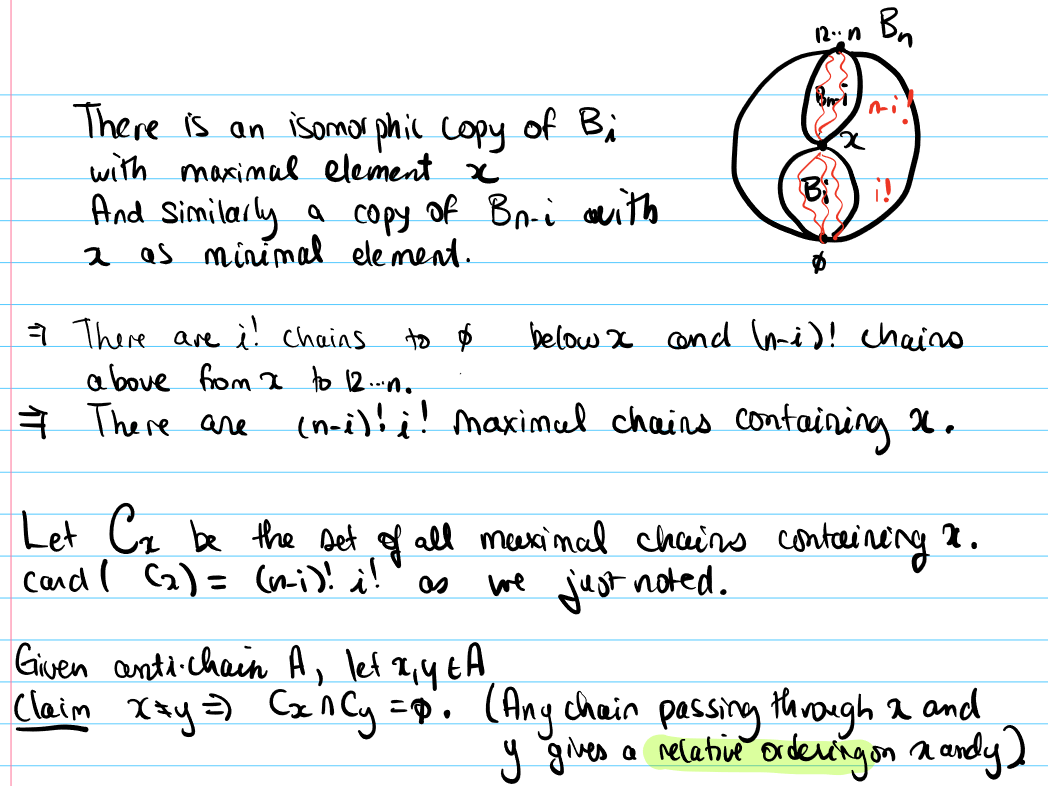 12...n Bn
Bn-i n-i!
There is an isomorphic copy of Bi
x
with maximal element x
Bi i!
And similarly a copy of Bn-i with
x as minimal element.
φ
⇒ There are i! chains to φ below x and (n-i)! chains
above from x to 12...n.
⇒ There are (n-i)! i! maximal chains containing x.
Let Cx be the set of all maximal chains containing x.
card( Cx) = (n-i)! i! as we just noted.
Given anti-chain A, let x,y ∈ A
Claim x≠y ⇒ Cx ∩ Cy = φ. (Any chain passing through x and
y gives a relative ordering on x and y)